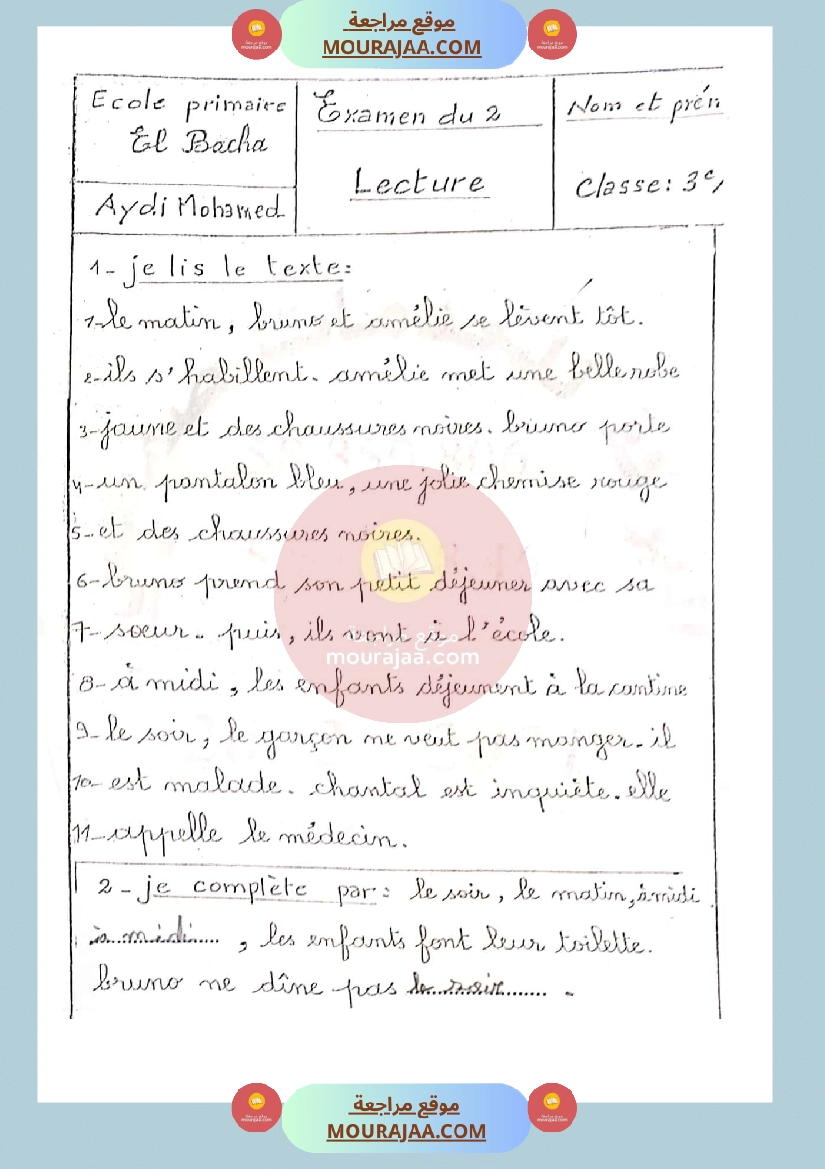 موقع مراجعة
MOURAJAA.COM
Ecole primaire
El Bacha
Aydi Mohamed
Examen du 2
Lecture
Nom et prén
Classe: 3e,
1- je lis le texte:
1- le matin, bruno et amélie se lèvent tôt.
2- ils s'habillent. amélie met une belle robe
3- jaune et des chaussures noires. bruno porte
4- un pantalon bleu, une jolie chemise rouge
5- et des chaussures noires.
6- bruno prend son petit déjeuner avec sa
7- soeur. puis, ils vont à l'école.
موقع مراجعة
mourajaa.com
8- à midi, les enfants déjeunent à la cantine
9- le soir, le garçon ne veut pas manger. il
10- est malade. chantal est inquiète. elle
11- appelle le médecin.
2- je complète par: le soir, le matin, à midi.
à midi......, les enfants font leur toilette.
bruno ne dîne pas le soir........ .
موقع مراجعة
MOURAJAA.COM